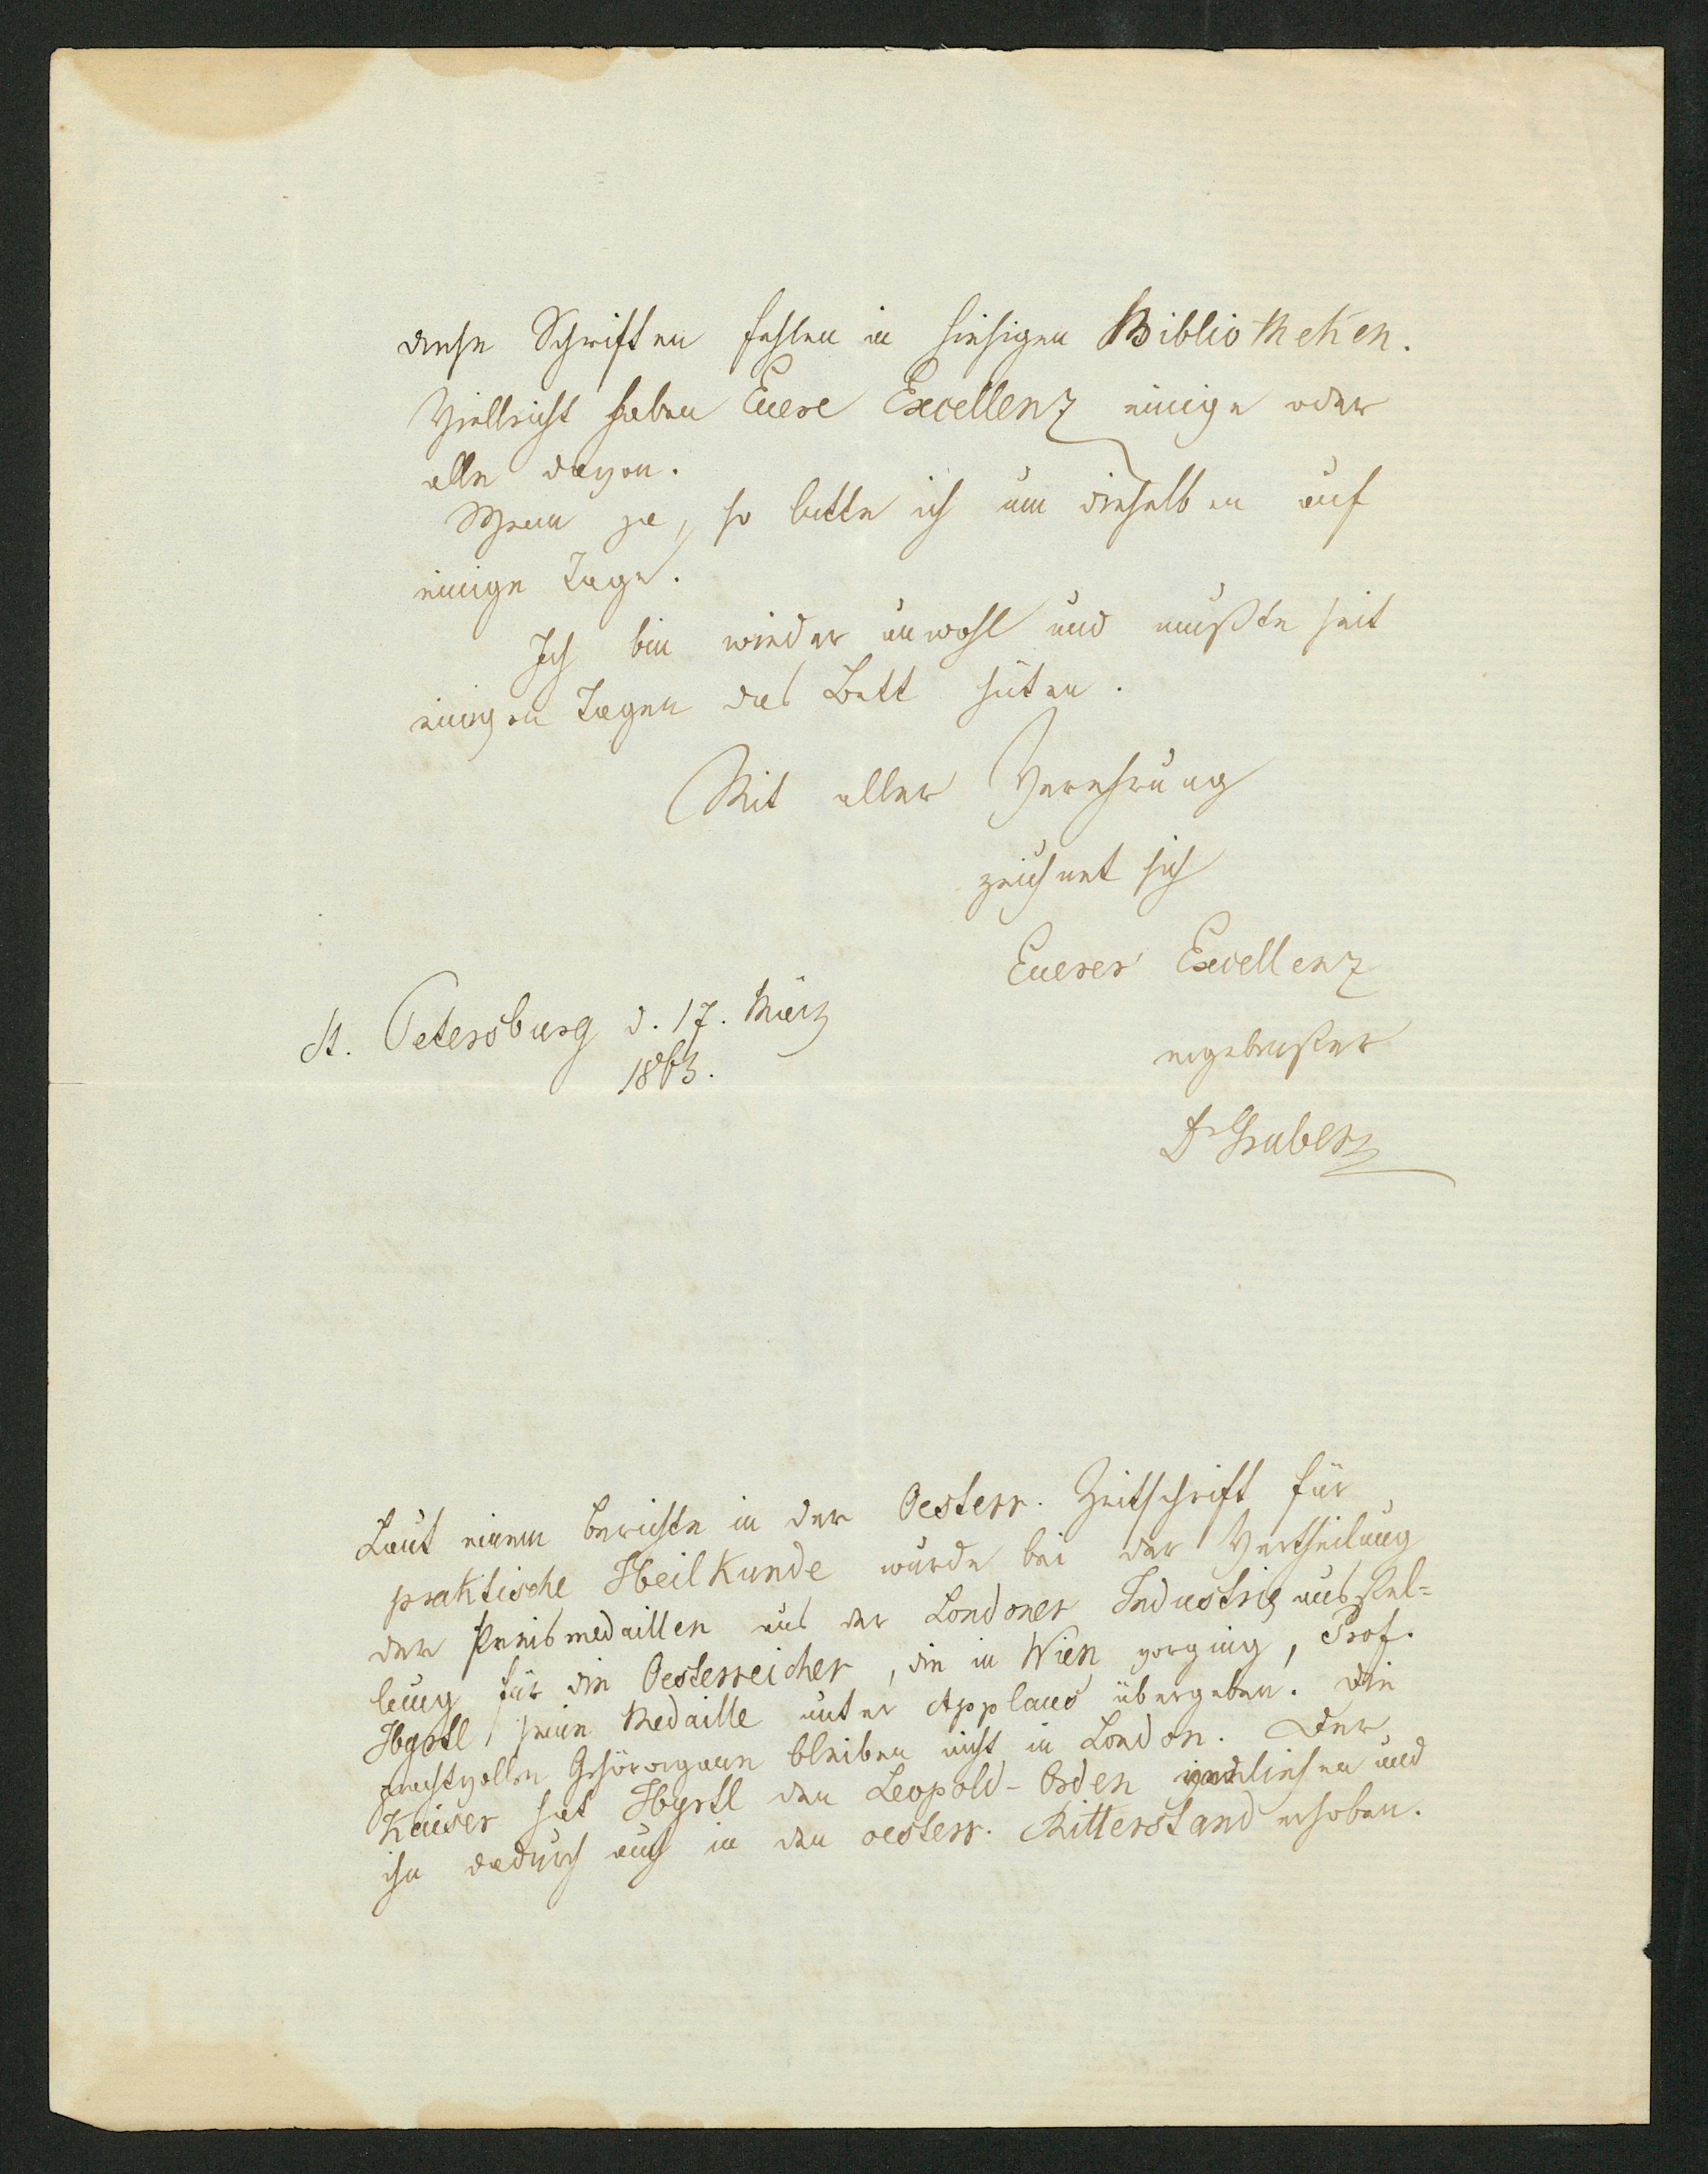 diese Schriften fehlen in hiesigen Bibliotheken.
Vielleicht haben Euere Excellenz einige oder
alle davon.
Wenn ja, so bitte ich um dieselben auf
einige Tage.
Ich bin wieder unwohl und mußte seit
einigen Tagen das Bett hüten.
Mit aller Verehrung
zeichnet sich
Euerer Excellenz
ergebenster
Dr Gruber
St. Petersburg d. 17. März
1863.
Laut einem Berichte in der Oesterr. Zeitschrift für
praktische Heilkunde wurde bei der Vertheilung
der Preismedaillen aus der Londoner Industrieausstel=
lung für die Oesterreicher, die in Wien vorging, Prof.
Hyrtl, seine Medaille unter Applaus übergeben. Die
prachtvollen Gehörorgane bleiben nicht in London. Der
Kaiser hat Hyrtl den Leopold-Orden verliehen und
ihn dadurch auch in den oesterr. Ritterstand erhoben.